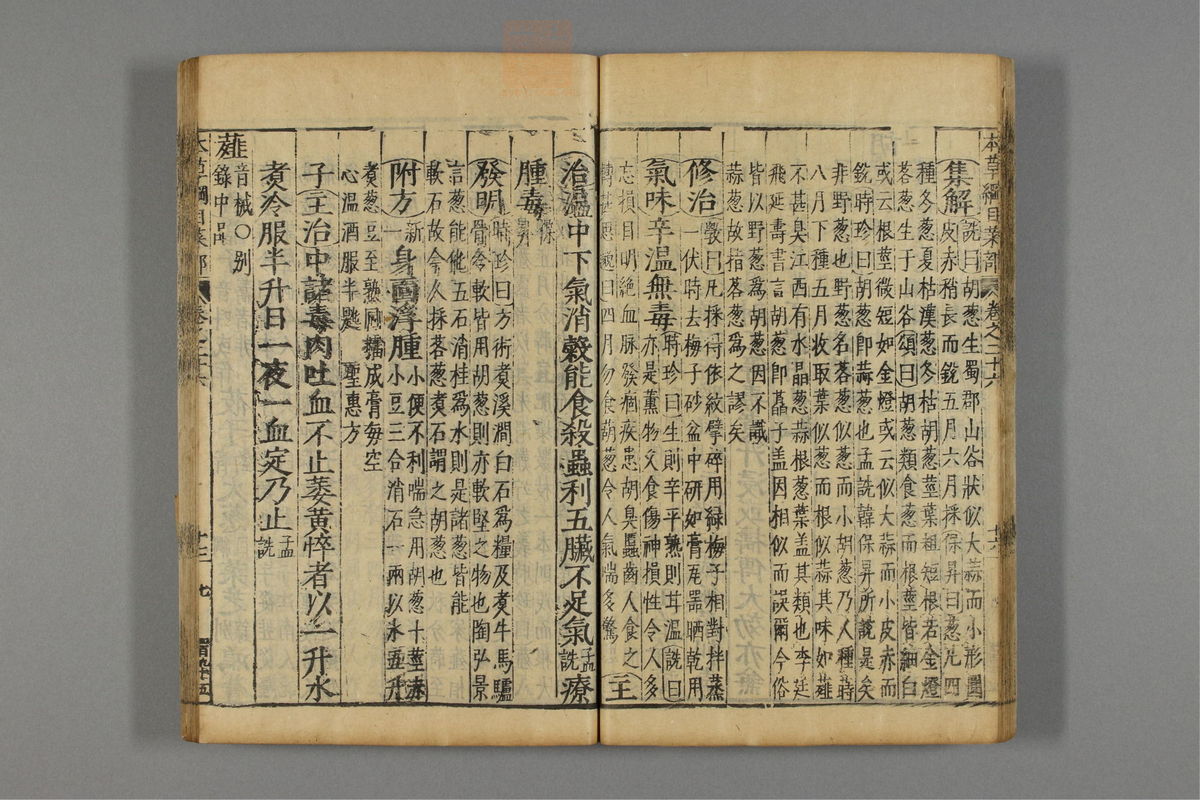 本草綱目菜部 卷之二十六 十六
集解 詵曰胡葱生蜀郡山谷狀似大蒜而小形圓
皮赤稍長而銳五月六月採保昇曰葱凡四
種冬葱夏枯漢葱冬枯胡葱莖葉粗短根若金燈
茖葱生于山谷頌曰胡葱類食葱而根莖皆細白
或云根莖微短如金燈或云似大蒜而小皮赤而
銳時珍曰胡葱即蒜葱也孟詵韓保昇所說是矣
非野葱也野葱名茖葱似葱而小胡葱乃人種蒔
八月下種五月收取葉似葱而根似蒜其味如薤
不甚臭江西有水晶葱蒜根葱葉蓋其類也李廷
飛延壽書言胡葱即藠子蓋因相似而誤爾今俗
皆以野葱爲胡葱因不識
蒜葱故指茖葱爲之謬矣
修治 斆曰凡採得依紋擘碎用緑梅子相對拌蒸
一伏時去梅子砂盆中研如膏瓦器晒乾用
氣味辛溫無毒 時珍曰生則辛平熟則甘溫詵曰
亦是薫物久食傷神損性令人多
忘損目明絶血脉發痼疾患胡臭䘌齒人食之
轉甚思邈曰四月勿食葫葱令人氣喘多驚
主
治溫中下氣消穀能食殺蟲利五臟不足氣 孟詵 療
腫毒
發明 時珍曰方術煮溪澗白石爲糧及煮牛馬驢
骨令軟皆用胡葱則亦軟堅之物也陶弘景
言葱能化五石消桂爲水則是諸葱皆能
軟石故今人採茖葱煮石謂之胡葱也
附方 新一 身面浮腫 小便不利喘急用胡葱十莖赤
小豆三合消石一兩以水五升
煮葱豆至熟同擂成膏每空
心溫酒服半匙 聖惠方
子 主治中諸毒肉吐血不止萎黄悴者以一升水
煮冷服半升日一夜一血定乃止 孟詵
薤 音械○别
錄中品
本草綱目菜部 卷之二十六